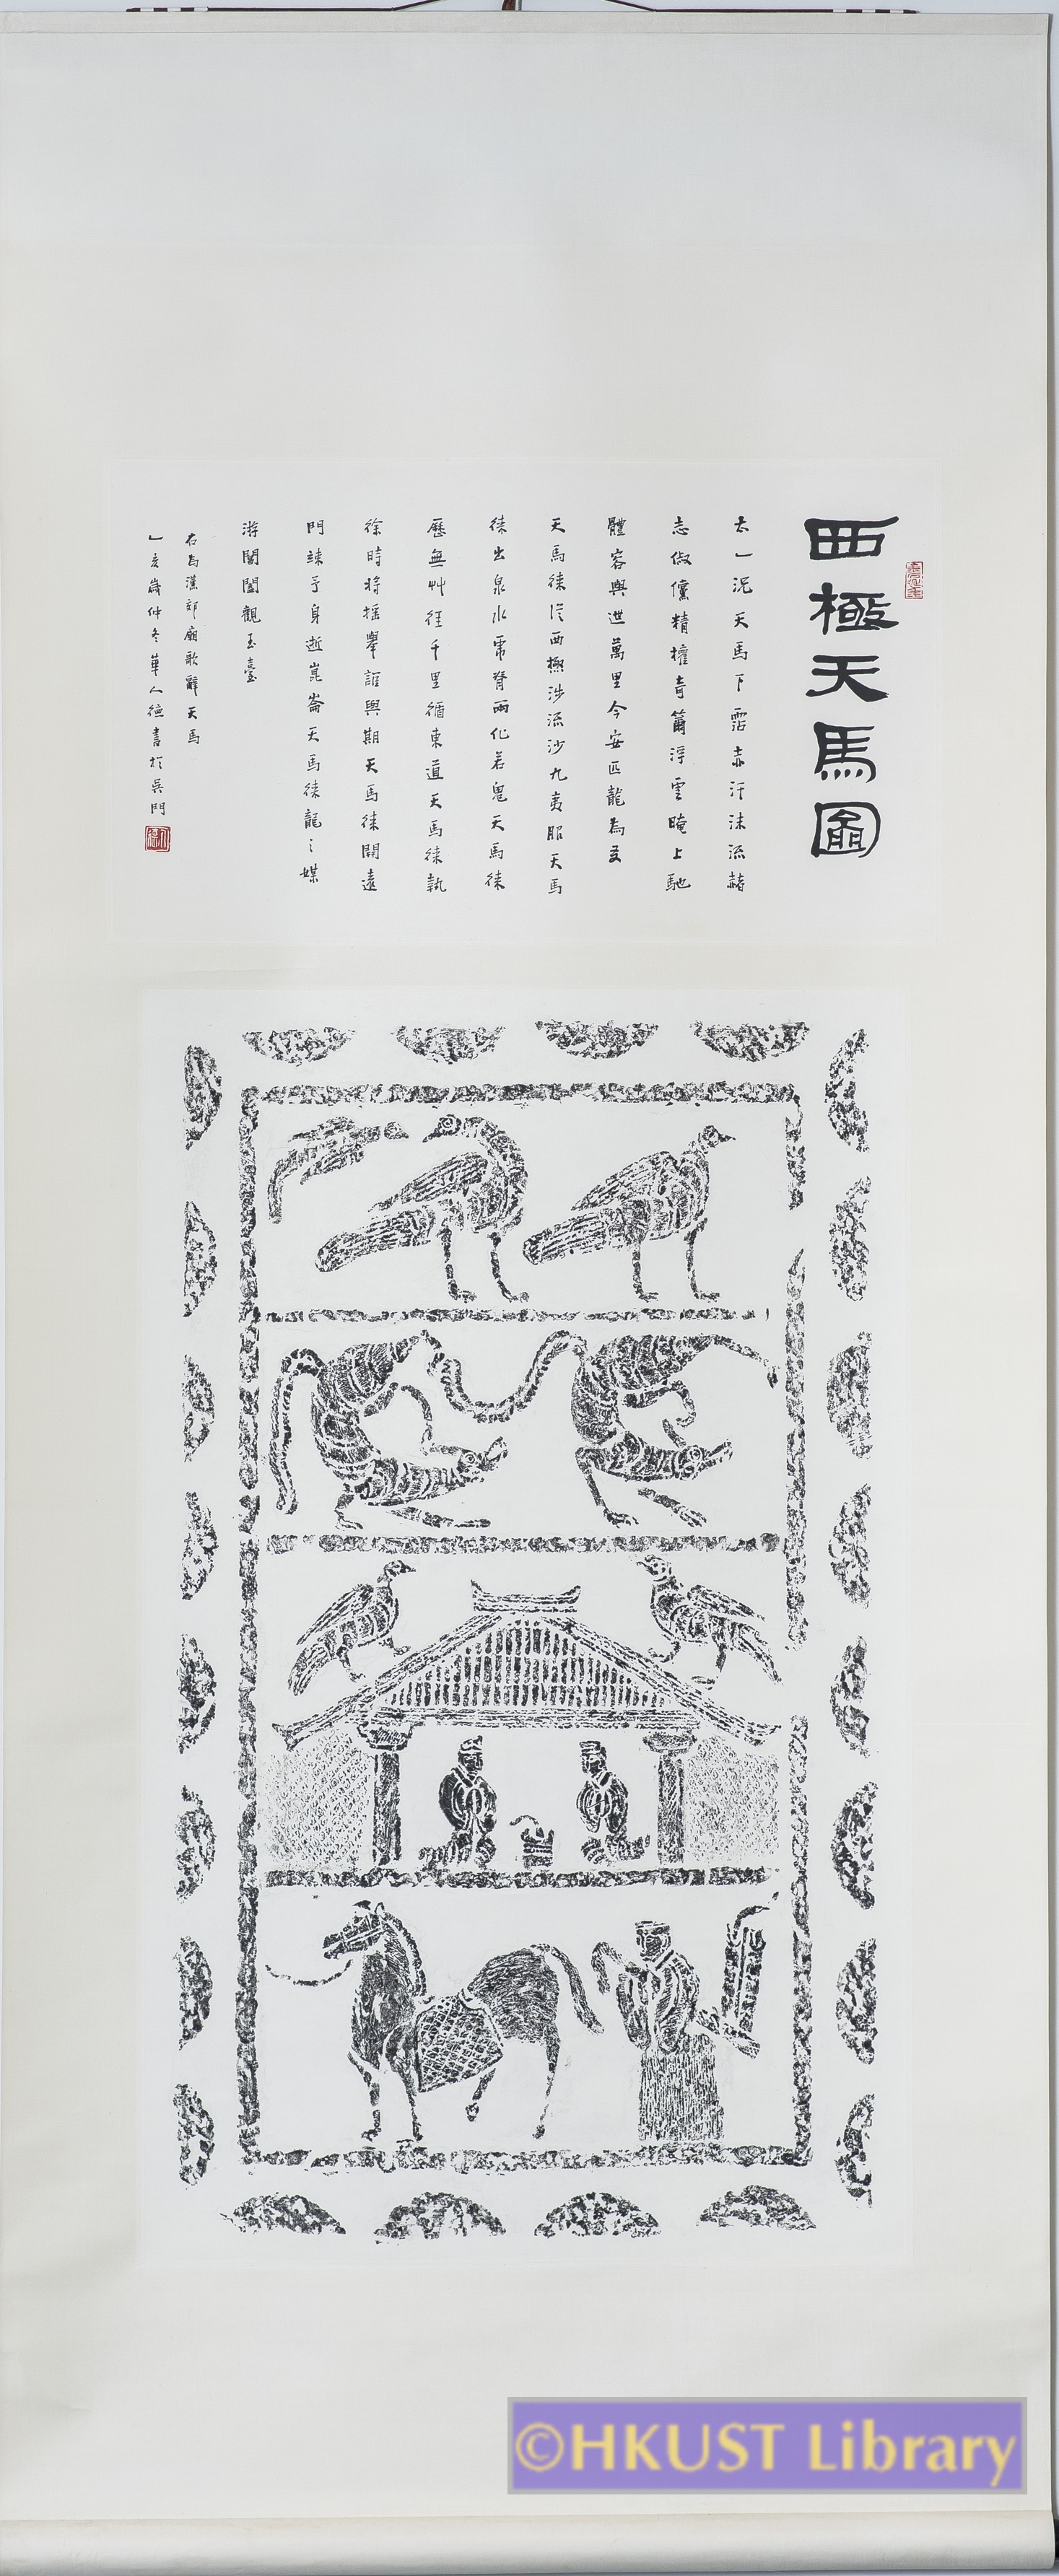 西極天馬圖
太一況天馬下霑赤汗沫流赭
志俶儻精權奇籋浮雲晻上馳
體容與迣萬里今安匹龍為友
天馬徠從西極涉流沙九夷服天馬
徠出泉水虎脊兩化若鬼天馬徠
歷無艸徑千里循東道天馬徠執
徐時將搖舉誰與期天馬徠開遠
門竦予身逝崑崙天馬徠龍之媒
游閶闔觀玉臺
右為漢郊廟歌辭天馬
乙亥歲仲冬華人德書於吳門
©HKUST Library